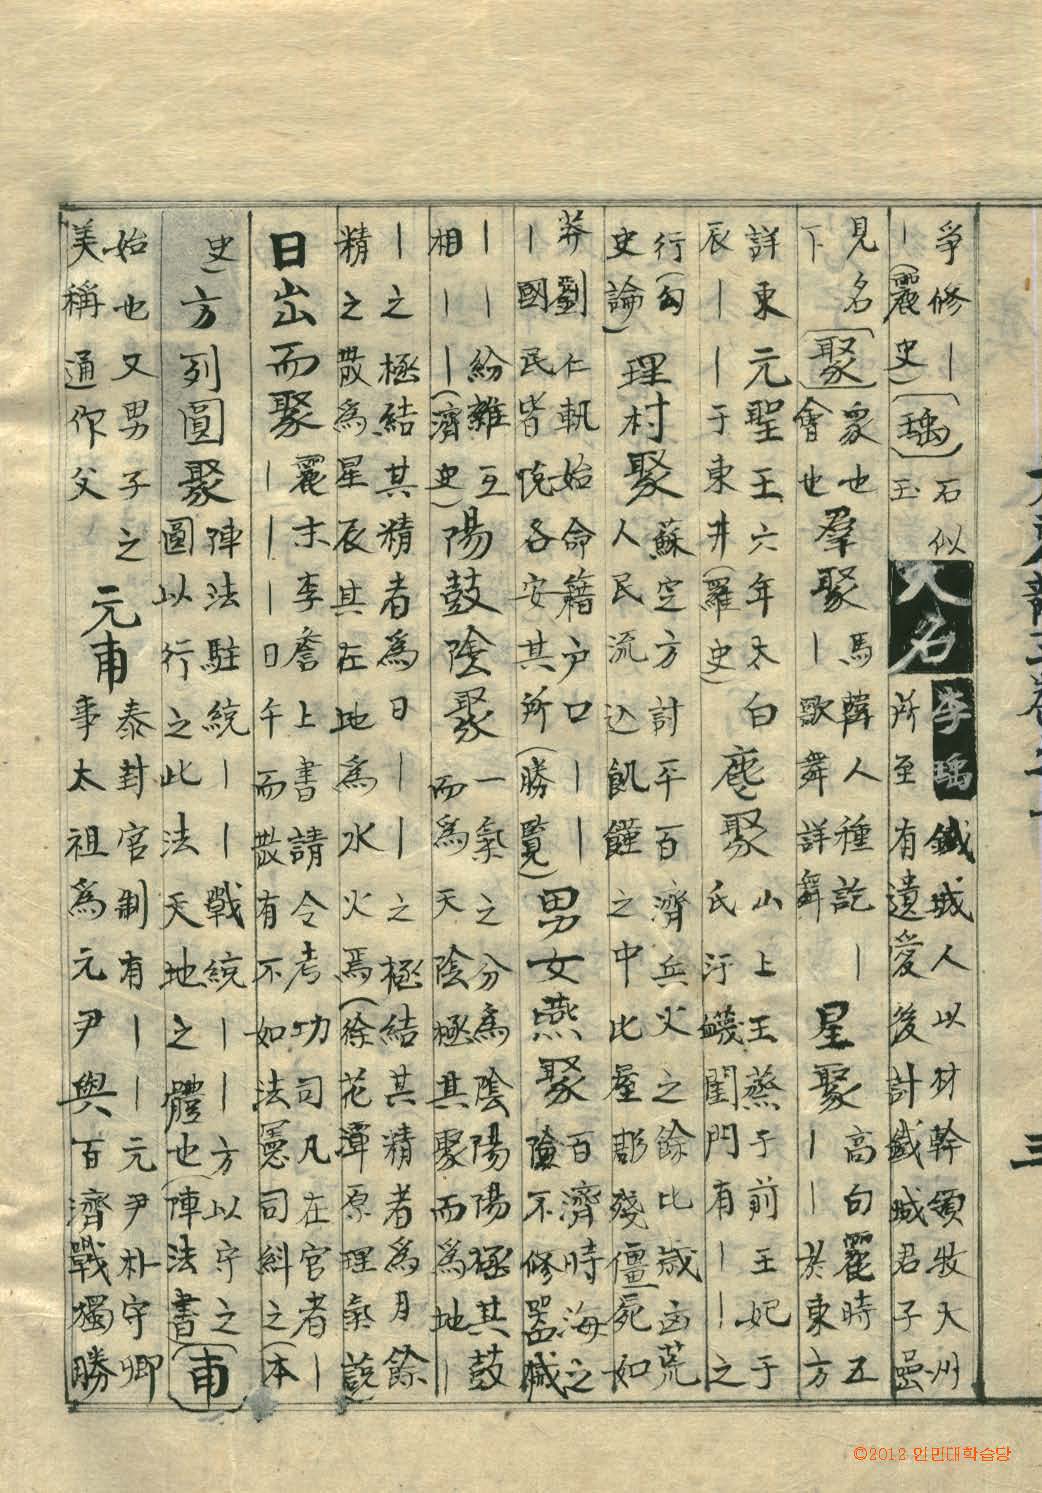 爭修｜石似
｜（麗史）［瑀］玉
人名 李瑀 鐵城人以材幹領牧大州
所至有遺愛後計鐵城君子嵒
見名［聚］衆也
下會也
羣聚 馬韓人種訖｜
｜歌舞詳舞
星聚 高句麗時五
｜｜於東方
詳東元聖王六年太白
辰｜｜于東井（羅史）
麀聚 山上王蒸于前王妃于
氏汙衊閨門有｜｜之
行（勾
史論）
理村聚 蘇定方討平百濟兵火之餘比歲凶荒
人民流込飢饉之中比屋彫殘僵屍如
莽劉仁軌始命籍戶口｜｜
｜國民皆悅各安其所（勝覽）
男女燕聚 百濟時海之
險不修器械
｜｜紛雜互
相｜｜（濟史）
陽鼓陰聚 一氣之分爲陰陽陽極其鼓
而爲天陰極其聚而爲地｜
｜之極結其精者爲日｜｜之極結其精者爲月餘
精之散爲星辰其在地爲水火焉（徐花潭原理氣說
日出而聚 麗末李詹上書請令考功司凡在官者｜
｜｜｜日午而散有不如法憲司糾之（本
史）
方列圓聚 陣法駐統｜｜戰統｜｜方以守之
圖以行之此法天地之體也（陣法書）
［甫］
始也又男子之
美稱通作父
元甫 泰封官制有｜｜元尹朴守卿
事太祖爲元尹與百濟戰獨勝
三
©2012 인민대학습당